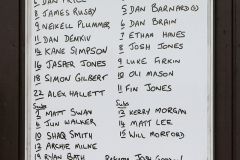 5 DAN PRICE
8 JAMES RUSBY
9 NEIKELL PLUMMER
11 DAN DENKIV
14 KANE SIMPSON
16 JASPER JONES
18 SIMON GILBERT
22 ALEX HALLETT
Subs
2 MATT SWAN
4 JUN WALKER
10 SHAQ SMITH
13 ARCHIE MILNE
19 RYAN BATH
5 DAN BARNARD
6 DAN BRAIN
7 ETHAN HINES
8 JOSH JONES
9 LUKE FIRKIN
10 OLI MASON
11 FIN JONES
Subs
12 KERRY MORGAN
14 MATT LEE
15 WILL MORFORD